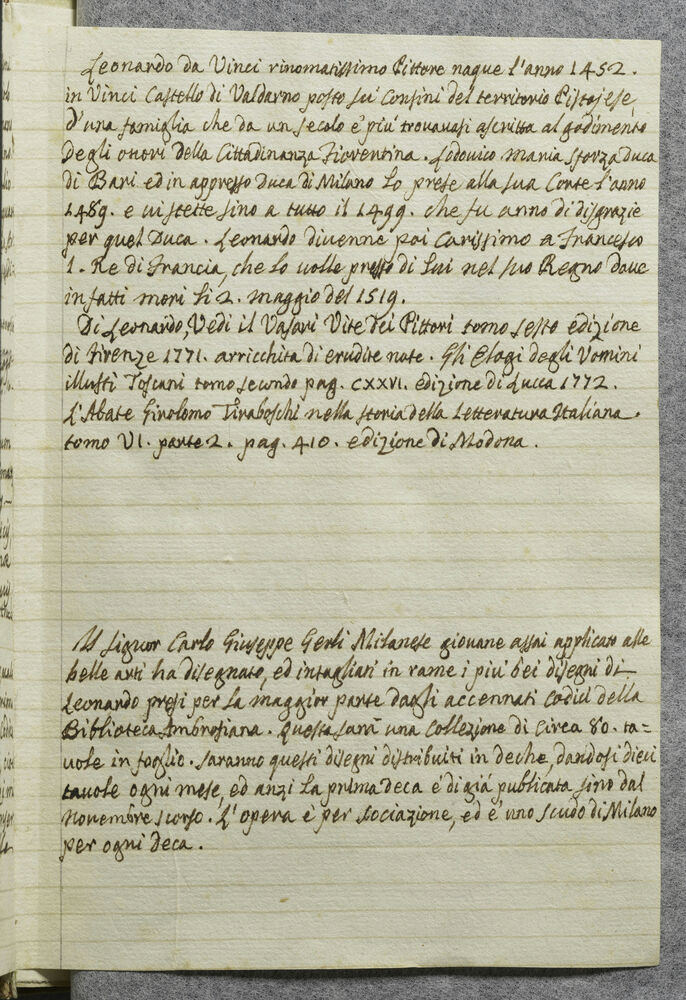 Leonardo da Vinci rinomatissimo Pittore naque l'anno 1452.
in Vinci Castello di Valdarno posto sui Confini del territorio Pistojese,
d'una famiglia che da un secolo e più trovavasi ascritta al godimento
degli onori della Cittadinanza Fiorentina. Lodovico Maria Sforza Duca
di Bari ed in appresso Duca di Milano lo prese alla sua Corte l'anno
1489. e vi stette sino a tutto il 1499. che fu anno di disgrazie
per quel Duca. Leonardo divenne poi Carissimo a Francesco
1. Re di Francia, che lo volle presso di lui nel suo Regno dove
infatti morì li 2. maggio del 1519.
Di Leonardo, Vedi il Vasari Vite dei Pittori tomo sesto edizione
di Firenze 1771. arricchita di erudite note. Gli Elogi degli Uomini
illustri Toscani tomo secondo pag. CXXVI. edizione di Lucca 1772.
L'Abate Girolomo Tiraboschi nella storia della Letteratura Italiana.
tomo VI. parte 2. pag. 410. edizione di Modona.
Il Signor Carlo Giuseppe Gerli Milanese giovane assai applicato alle
belle arti ha disegnato, ed intagliati in rame i più bei disegni di
Leonardo presi per la maggior parte dagli accennati Codici della
Biblioteca Ambrosiana. Questa sarà una Collezione di Circa 80. ta=
vole in foglio. Saranno questi disegni distribuiti in deche, dandosi dieci
tavole ogni mese, ed anzi la prima deca è di già publicata sino dal
Novembre scorso. L'opera è per sociazione, ed è uno scudo di Milano
per ogni deca.